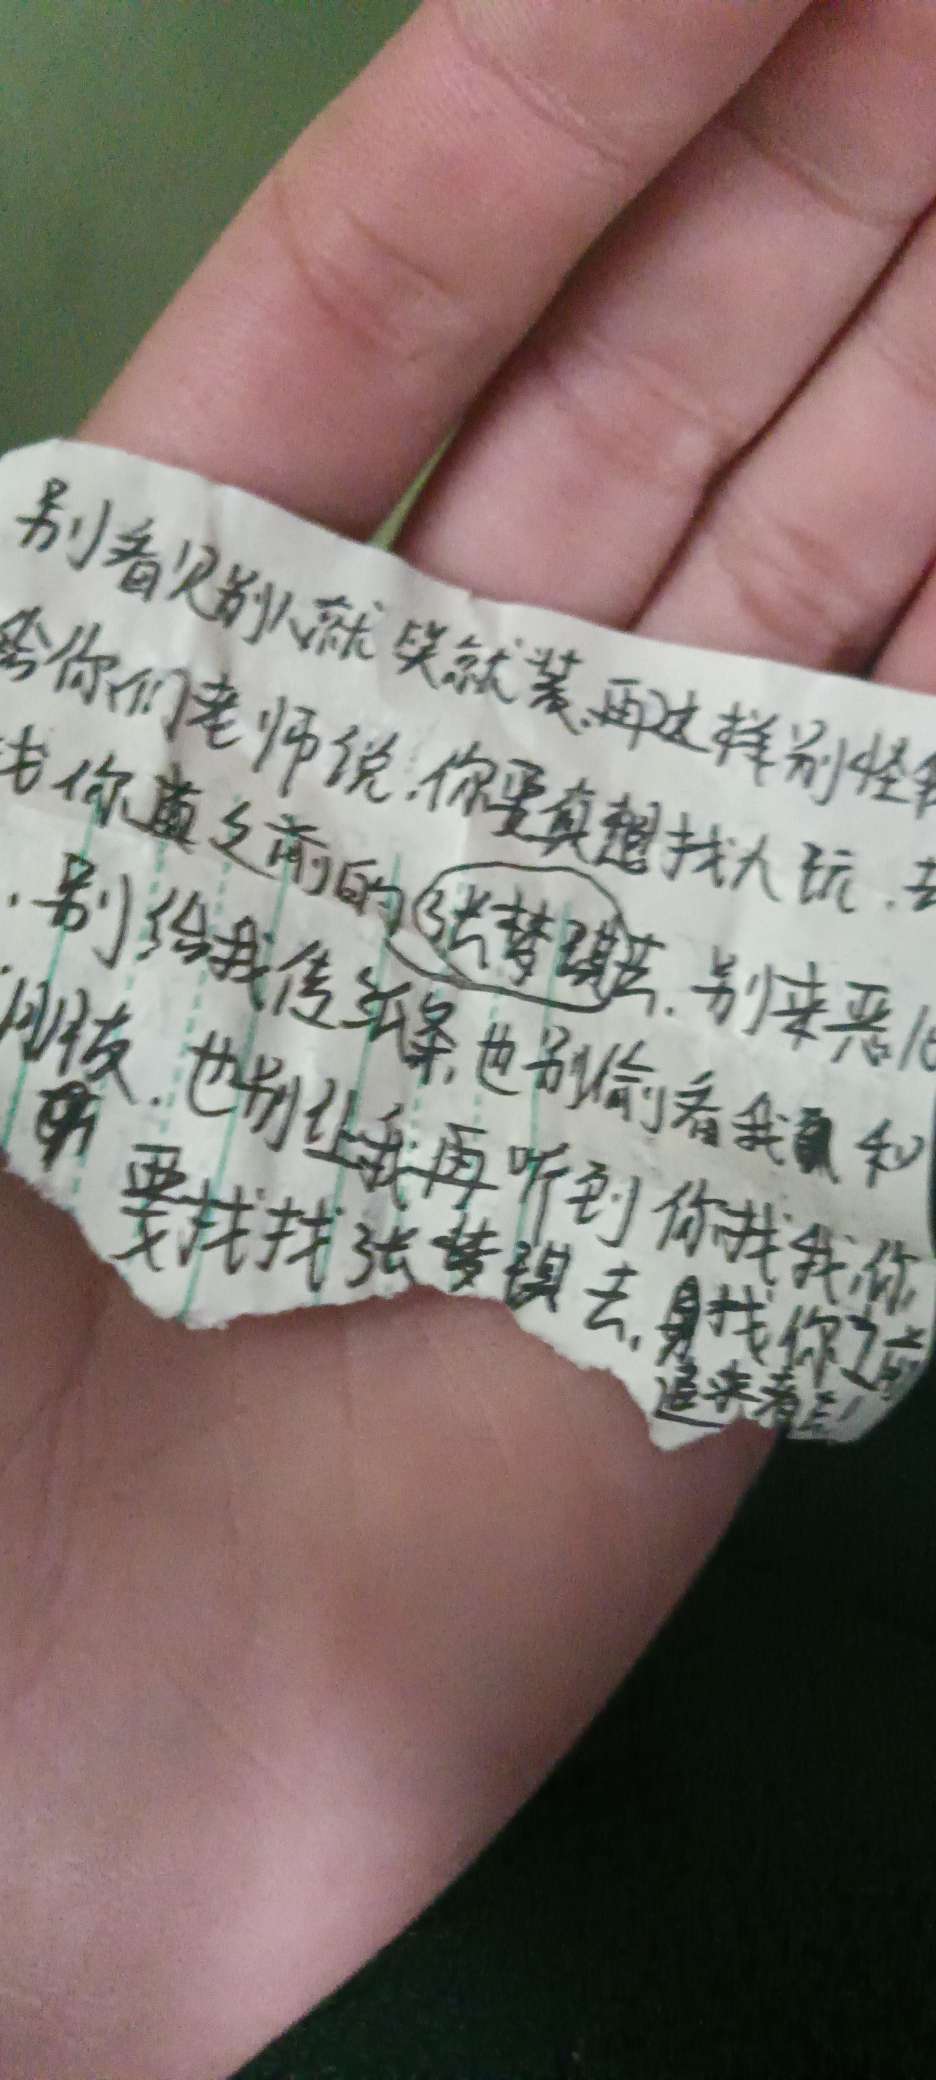 别看见别人就笑就装.再这样别怪我
给你们老师说.你要真想找人玩.去
找你真之前的张梦琪去.别来恶心
.别给我传纸条,也别偷看我和
朋友.也别让我再听到你找我,你
要找找张梦琪去,找你之前
追来着去!